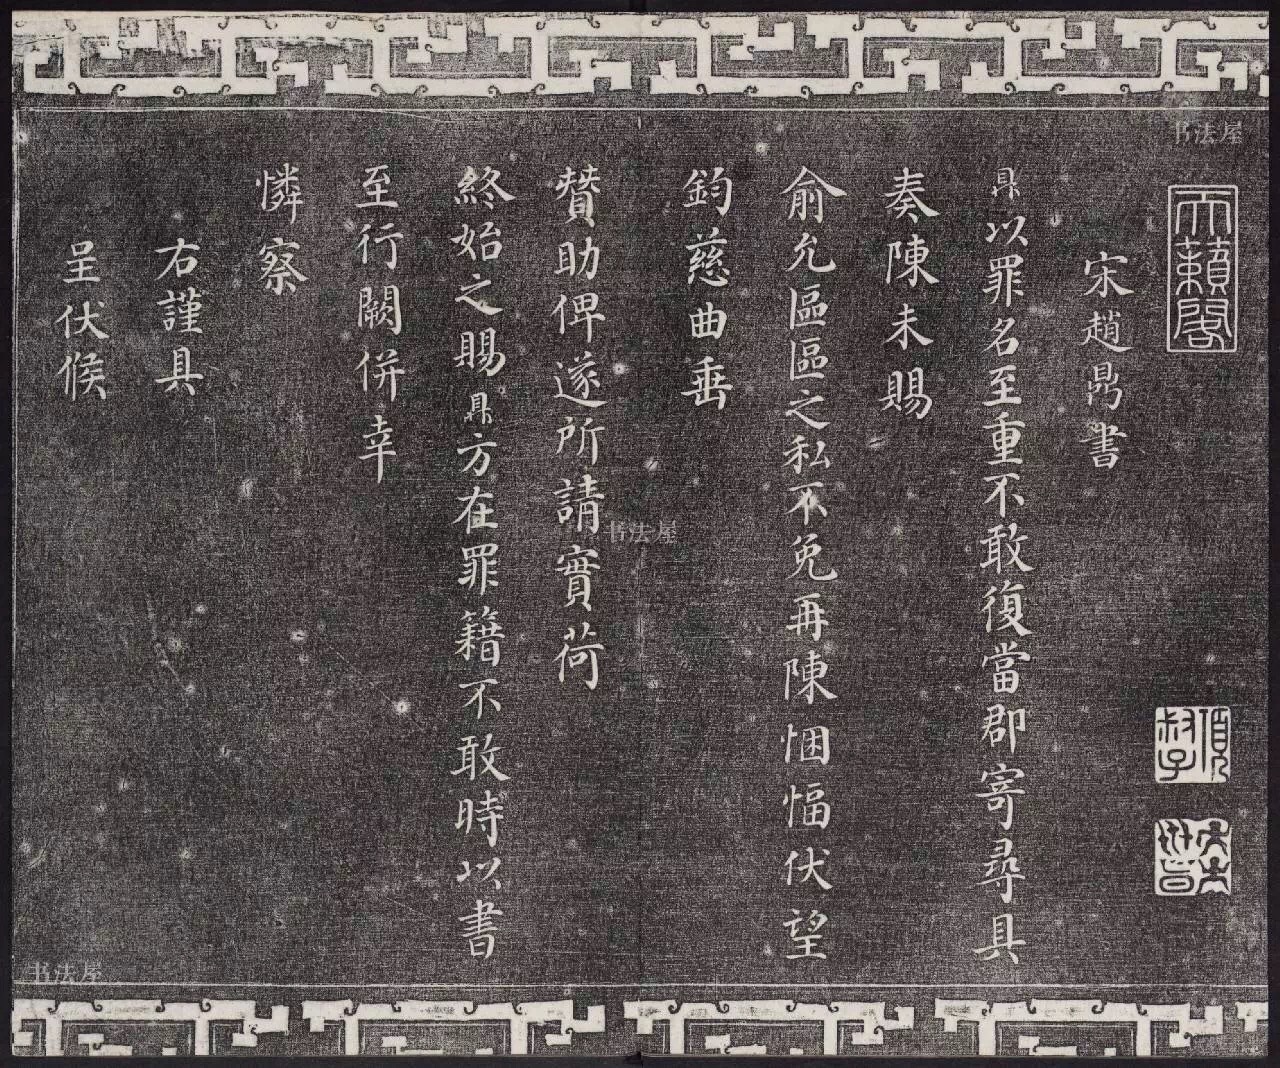 书法屋
天籟閣
宋趙鼎書
項叔子
鼎以罪名至重不敢復當郡寄尋具
奏陳未賜
俞允區區之私不免再陳悃愊伏望
鈞慈曲垂
书法屋
贊助俾遂所請實荷
終始之賜鼎方在罪籍不敢時以書
至行闕併幸
憐察
右謹具
呈伏候
书法屋